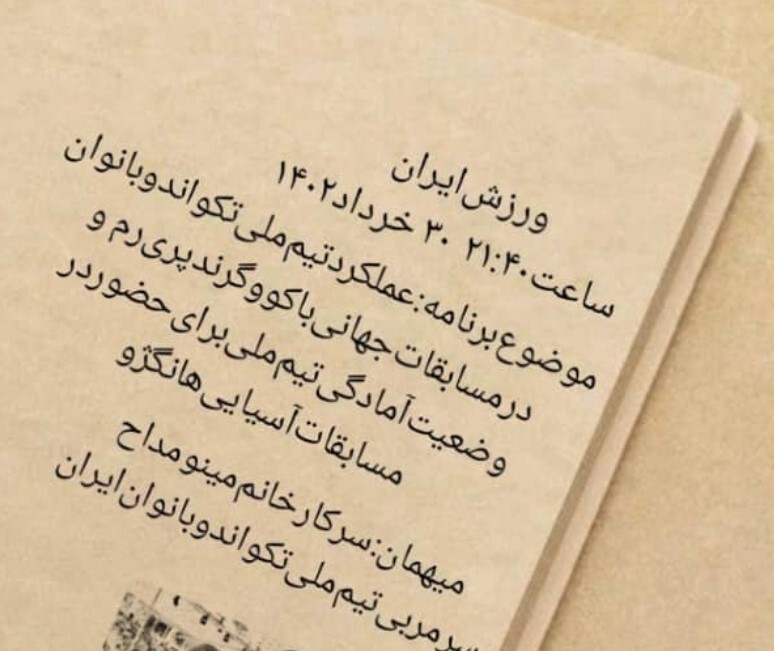 ورزش ایران
ساعت ۲۱:۴۰ ۳۰ خرداد ۱۴۰۲
موضوع برنامه: عملکرد تیم ملی تکواندو بانوان
در مسابقات جهانی باکو و گرندپری رم و
وضعیت آمادگی تیم ملی برای حضور در
مسابقات آسیایی هانگژو
میهمان: سرکار خانم مینو مداح
سرمربی تیم ملی تکواندو بانوان ایران